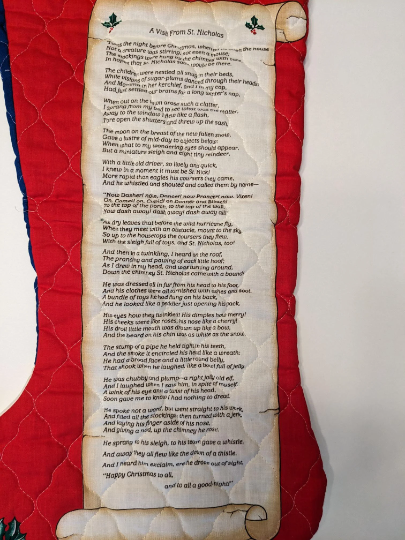 A Visit From St. Nicholas
'Twas the night before Christmas, when all through the house
Not a creature was stirring, not even a mouse.
The stockings were hung by the chimney with care,
In hopes that St. Nicholas soon would be there.
The children were nestled all snug in their beds,
While visions of sugar-plums danced through their heads
And Mamma in her kerchief, and I in my cap,
Had just settled our brains for a long winter's nap,
When out on the lawn arose such a clatter,
I sprang from my bed to see what was the matter.
Away to the window I flew like a flash,
Tore open the shutters and threw up the sash.
The moon on the breast of the new fallen snow,
Gave a lustre of mid-day to objects below:
When what to my wondering eyes should appear,
But a miniature sleigh and eight tiny reindeer.
With a little old driver, so lively and quick,
I knew in a moment it must be St. Nick!
More rapid than eagles his coursers they came,
And he whistled and shouted and called them by name—
"Now Dasher! now, Dancer! now Prancer! now, Vixen!
On, Comet! on, Cupid! on Donner and Blitzen!
To the top of the porch, to the top of the wall,
Now dash away! dash away! dash away all!
As dry leaves that before the wild hurricane fly,
When they meet with an obstacle, mount to the sky,
So up to the housetops the coursers they flew,
With the sleigh full of toys, and St. Nicholas, too!
And then in a twinkling, I heard on the roof,
The prancing and pawing of each little hoof;
As I drew in my head, and was turning around,
Down the chimney St. Nicholas came with a bound!
He was dressed all in fur from his head to his foot,
And his clothes were all tarnished with ashes and soot,
A bundle of toys he had flung on his back,
And he looked like a peddler just opening his pack.
His eyes how they twinkled! His dimples how merry!
His cheeks were like roses, his nose like a cherry!
His droll little mouth was drawn up like a bow,
And the beard on his chin was as white as the snow.
The stump of a pipe he held tight in his teeth,
And the smoke it encircled his head like a wreath:
He had a broad face and a little round belly,
That shook when he laughed, like a bowl full of jelly.
He was chubby and plump—a right jolly old elf,
And I laughed when I saw him, in spite of myself.
A wink of his eye and a twist of his head,
Soon gave me to know I had nothing to dread.
He spoke not a word, but went straight to his work,
And filled all the stockings; then turned with a jerk,
And laying his finger aside of his nose,
And giving a nod, up the chimney he rose.
He sprang to his sleigh, to his team gave a whistle,
And away they all flew like the down of a thistle.
And I heard him exclaim, ere he drove out of sight,
"Happy Christmas to all,
and to all a good-night!"